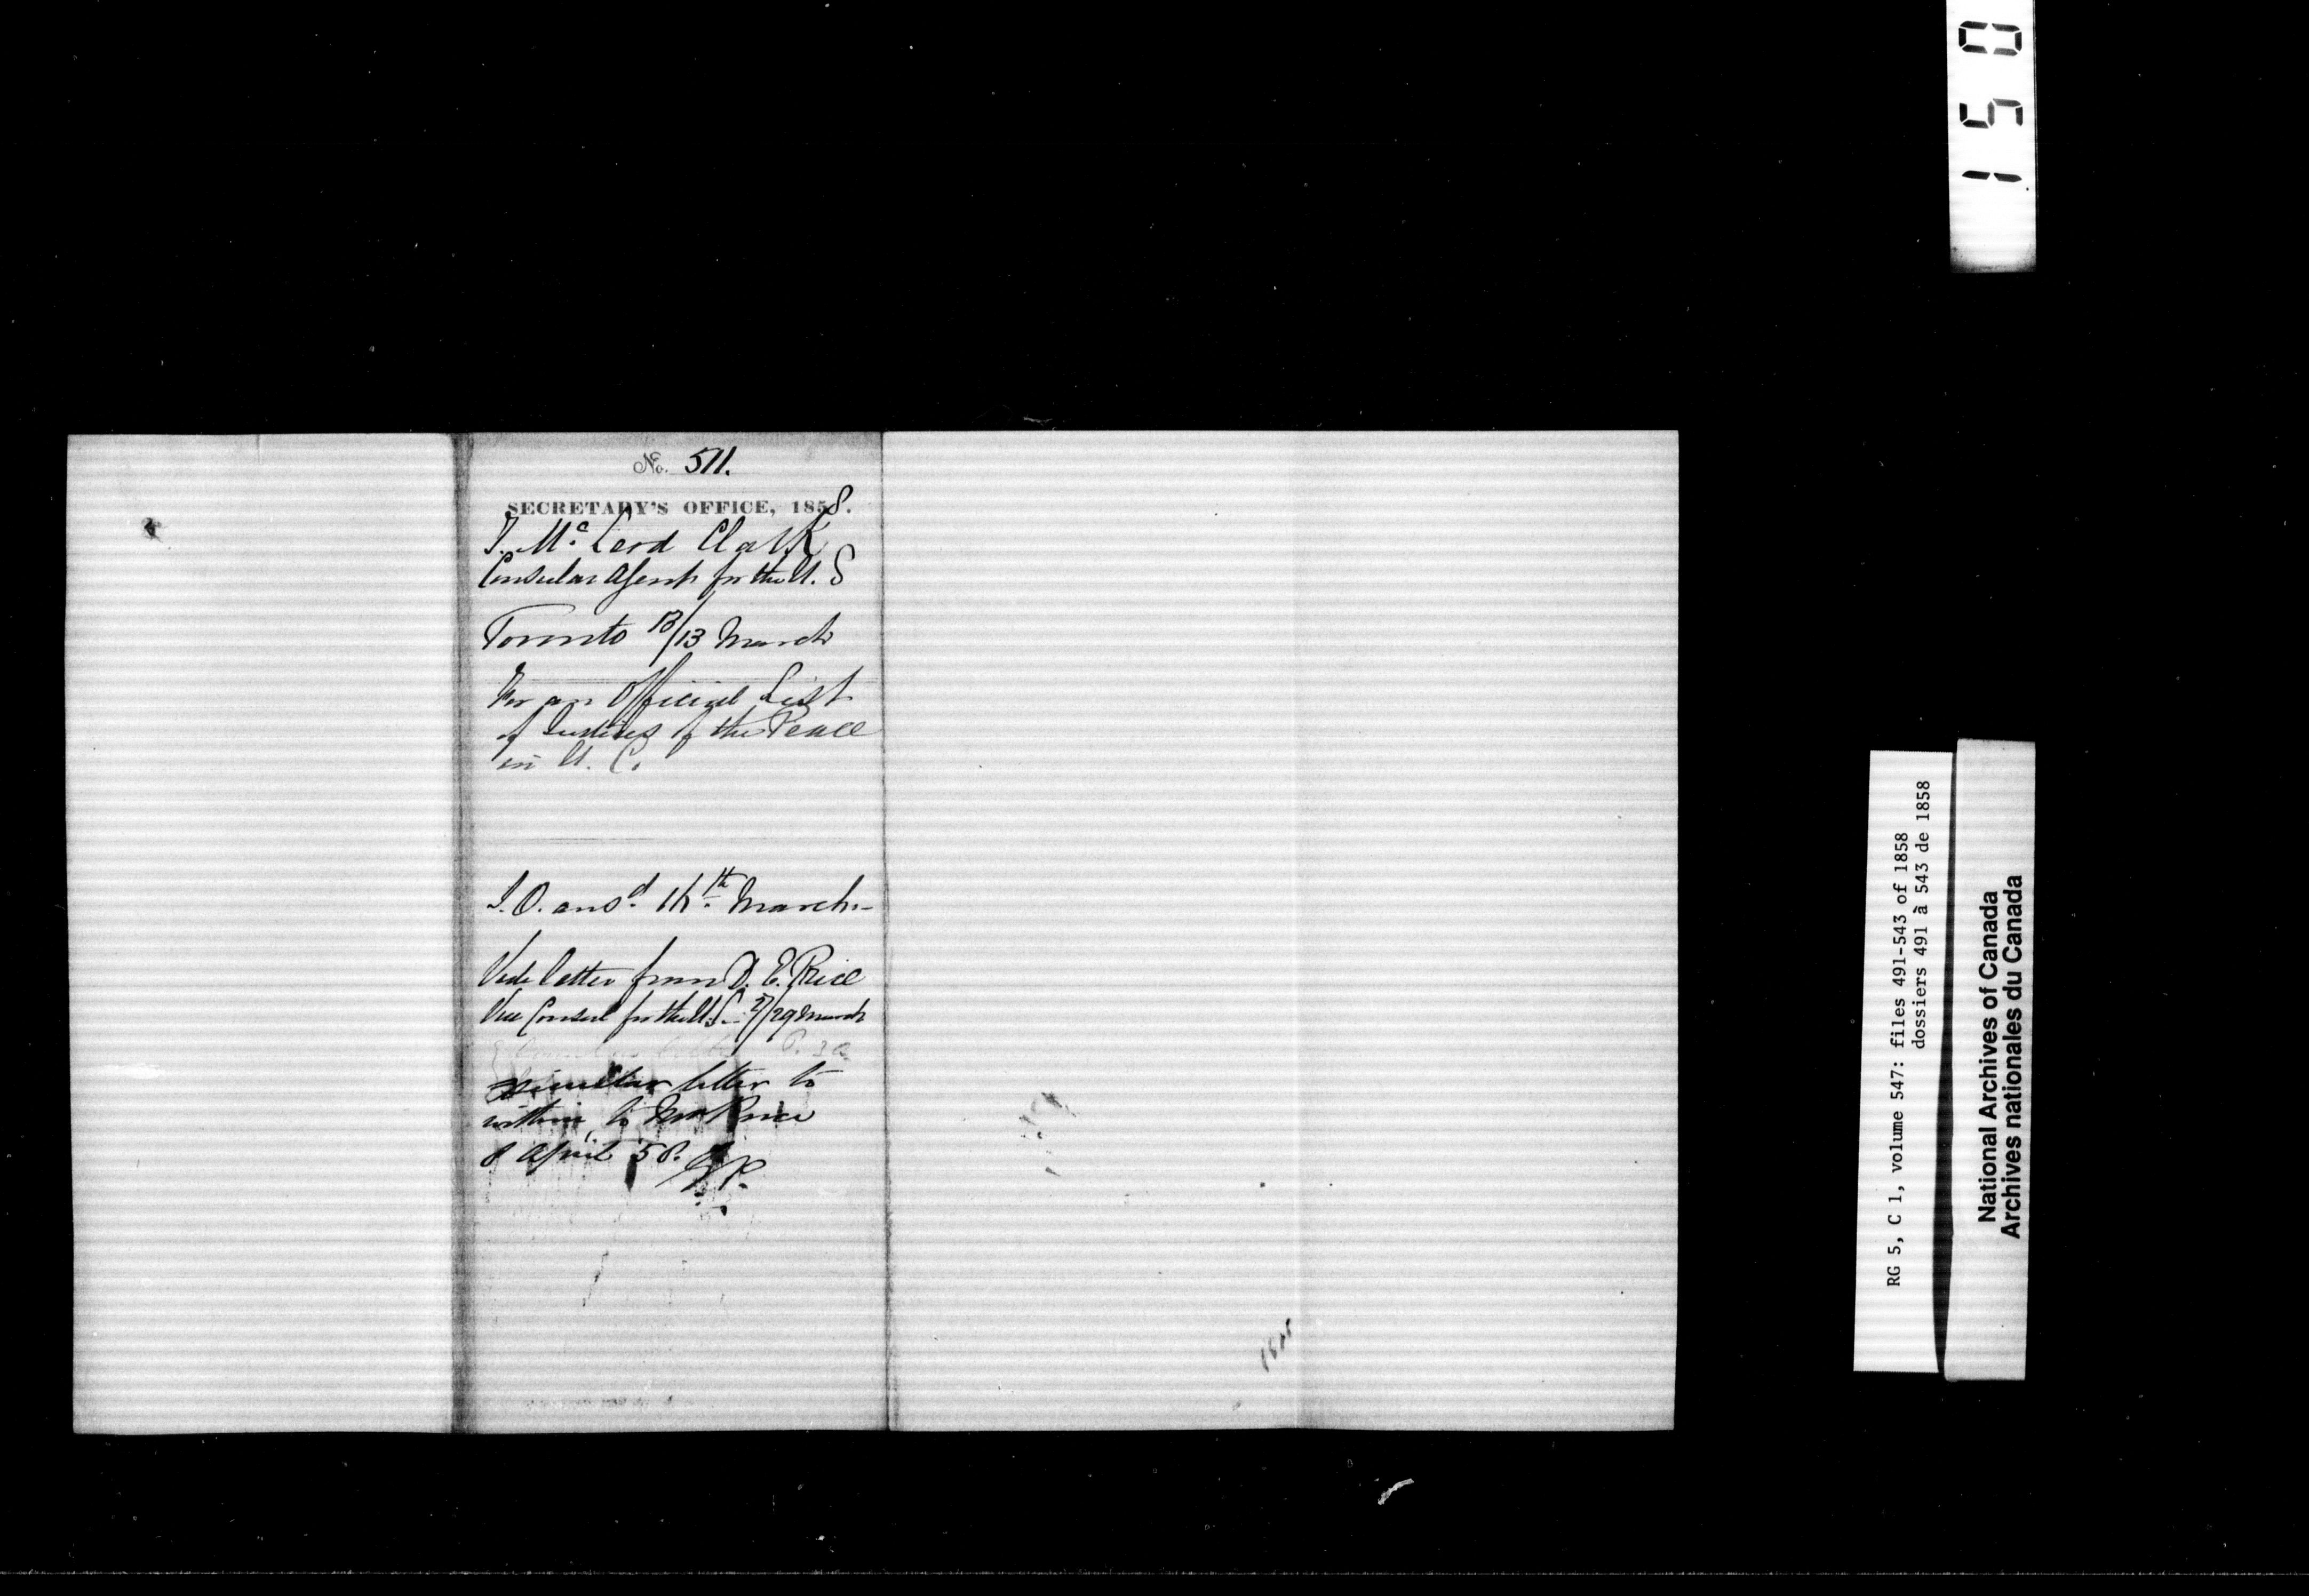 No. 511.
SECRETARY'S OFFICE, 1858.
T. Mc Leod Clark
Consular Agent for the U. S
Toronto 13/13 March
For an Official List
of Justices of the Peace
in U. C.
ansd. 16th. March.-
Vide letter from D. E. Rice
Vice Consul for the U.S. 27/29 March
similar letter to
within to Mr Rice
8 April 58.
150
RG 5, C 1, volume 547: files 491-543 of 1858
dossiers 491 à 543 de 1858
National Archives of Canada
Archives nationales du Canada